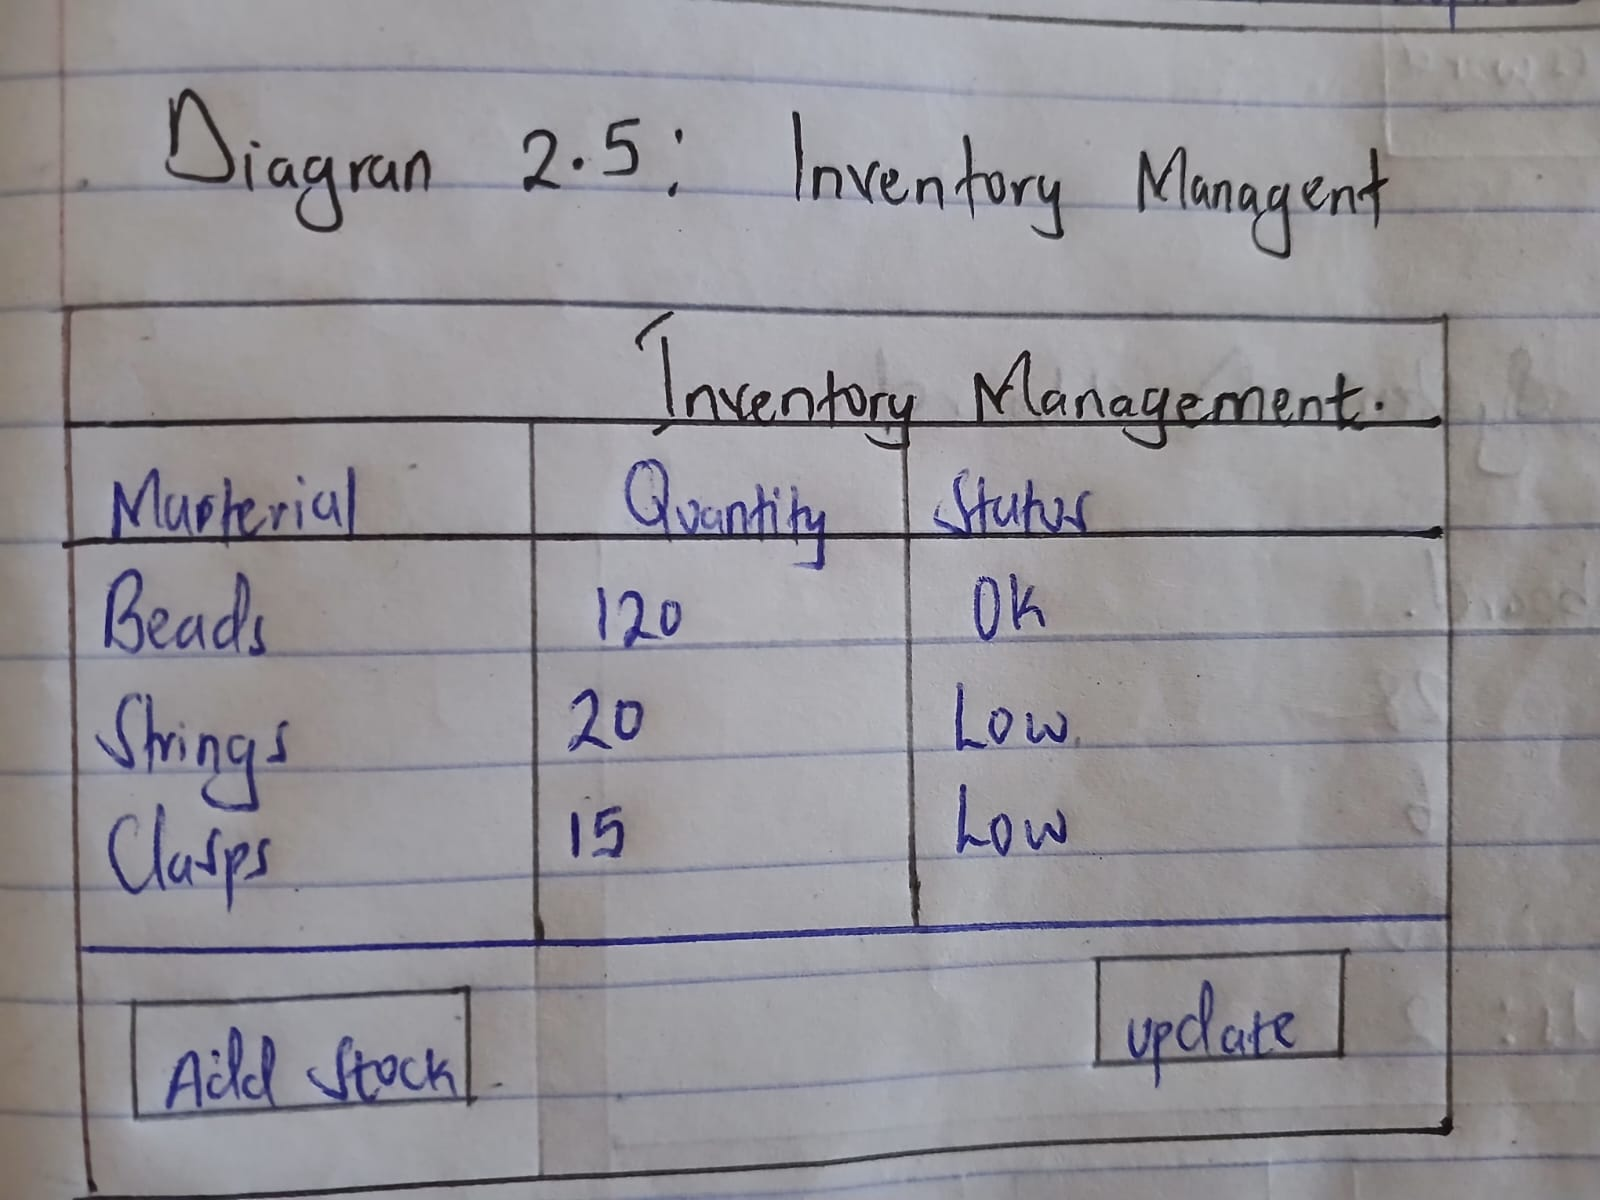 Diagran 2.5: Inventory Managent
Inventory Management.
Marterial Quantity Status
Beads 120 OK
Strings 20 Low.
Clasps 15 Low
Add Stock update